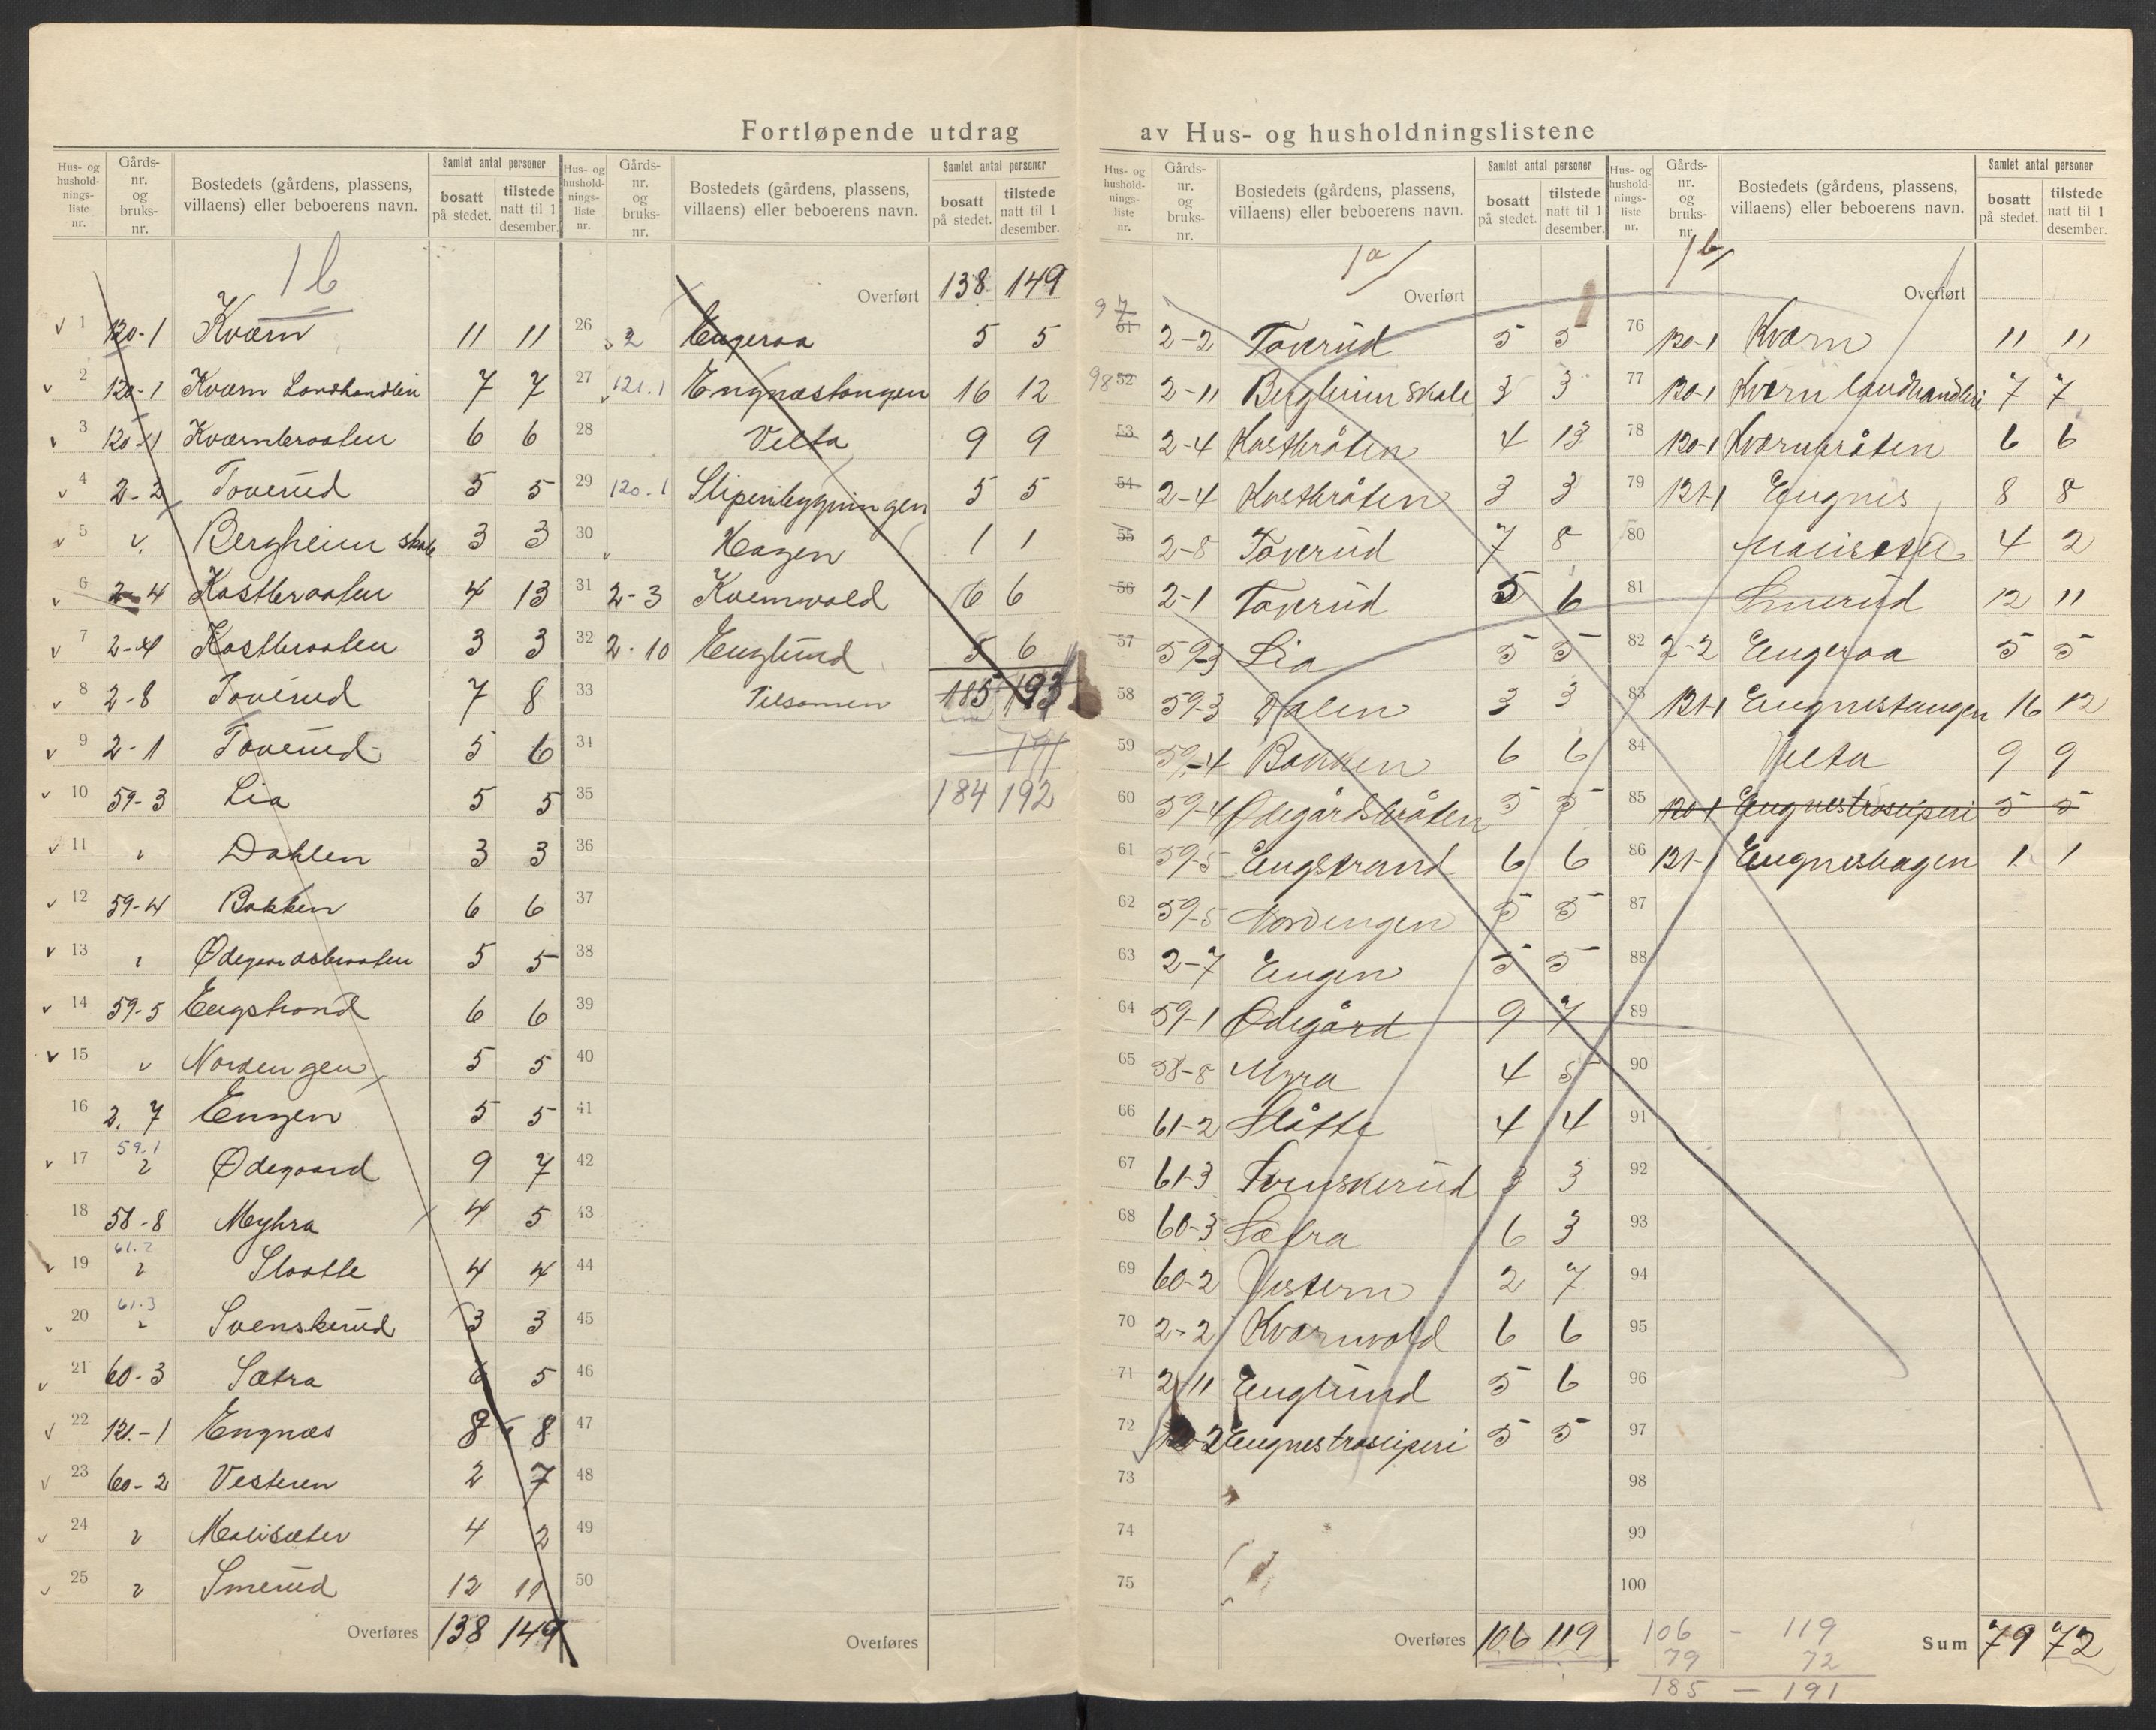 Fortløpende utdrag
Hus- og hushold- nings- liste nr. | Gårds- nr. og bruks- nr. | Bostedets (gårdens, plassens, villaens) eller beboerens navn. | Samlet antal personer bosatt på stedet. | tilstede natt til 1 desember.
1 b
1 120-1 Kværn 11 11
2 120-1 Kværn Landhandleri 7 7
3 120-1 Kværnbraaten 6 6
4 2-2 Toverud 5 5
5 " Bergheim skole 3 3
6 2-4 Kastbraaten 4 13
7 2-4 Kastbraaten 3 3
8 2-8 Toverud 7 8
9 2-1 Toverud 5 6
10 59-3 Lia 5 5
11 " Dahlen 3 3
12 59-4 Bakken 6 6
13 " Ødegaardsbraaten 5 5
14 59-5 Engstrand 6 6
15 " Nordengen 5 5
16 2. 7 Engen 5 5
17 59.1 Ødegaard 9 7
18 58-8 Myhra 4 5
19 61.2 Slaatte 4 4
20 61.3 Svenskerud 3 3
21 60-3 Sætra 6 5
22 121.-1 Engnæs 8 8
23 60-2 Vesteren 2 7
24 " Malisæter 4 2
25 " Smerud 12 11
Overføres 138 149
Hus- og hushold- nings- liste nr. | Gårds- nr. og bruks- nr. | Bostedets (gårdens, plassens, villaens) eller beboerens navn. | Samlet antal personer bosatt på stedet. | tilstede natt til 1 desember.
Overført 138 149
26 2 Engeraa 5 5
27 121.1 Engnæstangen 16 12
28 Velta 9 9
29 120.1 Sliperibygningen 5 5
30 Hagen 1 1
31 2-3 Kvernvold 6 6
32 2.10 Englund 5 6
33 Tilsamen 185 193
34 191
35 184 192
36
37
38
39
40
41
42
43
44
45
46
47
48
49
50
Overføres
av Hus- og husholdningslistene
Hus- og hushold- nings- liste nr. | Gårds- nr. og bruks- nr. | Bostedets (gårdens, plassens, villaens) eller beboerens navn. | Samlet antal personer bosatt på stedet. | tilstede natt til 1 desember.
1a
Overført
97 51 2-2 Toverud 5 5
98 52 2-11 Bergheim skole 3 3
53 2-4 Kastbråten 4 13
54 2-4 Kastbråten 3 3
55 2-8 Toverud 7 8
56 2-1 Toverud 5 6
57 59-3 Lia 5 5
58 59-3 Dalen 3 3
59 59-4 Bakken 6 6
60 59-4 Ødegårdsbråten 5 5
61 59-5 Engstrand 6 6
62 59-5 Nordengen 5 5
63 2-7 Engen 5 5
64 59-1 Ødegård 9 7
65 58-8 Myra 4 5
66 61-2 Slåtte 4 4
67 61-3 Svenskerud 3 3
68 60-3 Sætra 6 3
69 60-2 Vestern 2 7
70 2-2 Kværnvold 6 6
71 2-11 Englund 5 6
72 Engnestresliperi 5 5
73
74
75
Overføres 106 119
Hus- og hushold- nings- liste nr. | Gårds- nr. og bruks- nr. | Bostedets (gårdens, plassens, villaens) eller beboerens navn. | Samlet antal personer bosatt på stedet. | tilstede natt til 1 desember.
1b
Overført
76 120-1 Kværn 11 11
77 120-1 Kværn landhandleri 7 7
78 120-1 Kværnbråten 6 6
79 121-1 Engnes 8 8
80 Maliseter 4 2
81 Smerud 12 11
82 2-2 Engeraa 5 5
83 121-1 Engnestangen 16 12
84 Velta 9 9
85 120-1 Engnestresliperi 5 5
86 121-1 Engneshagen 1 1
87
88
89
90
91
92
93
94
95
96
97
98
99
100
Sum 79 72
106 - 119
79 72
185 - 191